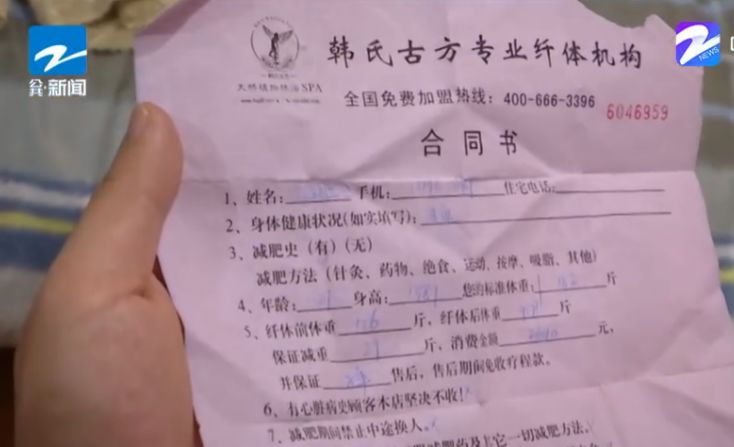 新闻
NEWS
韩氏古方专业纤体机构
天然植物体浴SPA
全国免费加盟热线：400-666-3396
6046959
合同书
1、姓名： 手机： 住宅电话：
2、身体健康状况(如实填写)：
3、减肥史（有）（无）
减肥方法（针灸、药物、绝食、运动、按摩、吸脂、其他）
4、年龄： 身高： 您的标准体重： 斤
5、纤体前体重 斤，纤体后体重 斤
保证减重 斤，消费金额 元，
并保证 售后，售后期间免收疗程款。
6、有心脏病史顾客本店坚决不收！
7、减肥期间禁止中途换人。
减肥药及其它一切减肥方法。